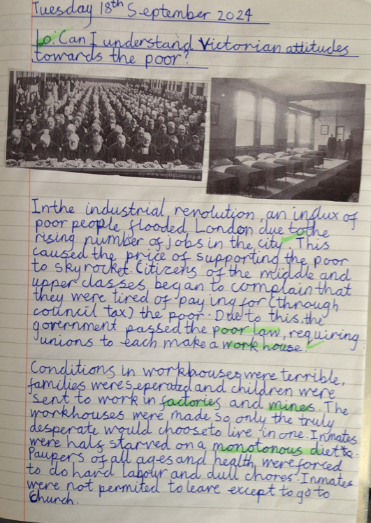 Tuesday 18th September 2024
Lo: Can I understand Victorian attitudes
towards the poor?
In the industrial revolution, an influx of
poor people flooded London due to the
rising number of jobs in the city. This
caused the price of supporting the poor
to skyrocket. Citizens of the middle and
upper classes began to complain that
they were tired of paying for (through
council tax) the poor. Due to this, the
government passed the poor law, requiring
unions to each make a work house.
Conditions in workhouses were terrible,
families were seperated and children were
sent to work in factories and mines. The
workhouses were made so only the truly
desperate would choose to live in one. Inmates
were half starved on a monotonous diet
Paupers of all ages and health were forced
to do hard labour and dull chores. Inmates
were not permited to leave except to go to
Church.